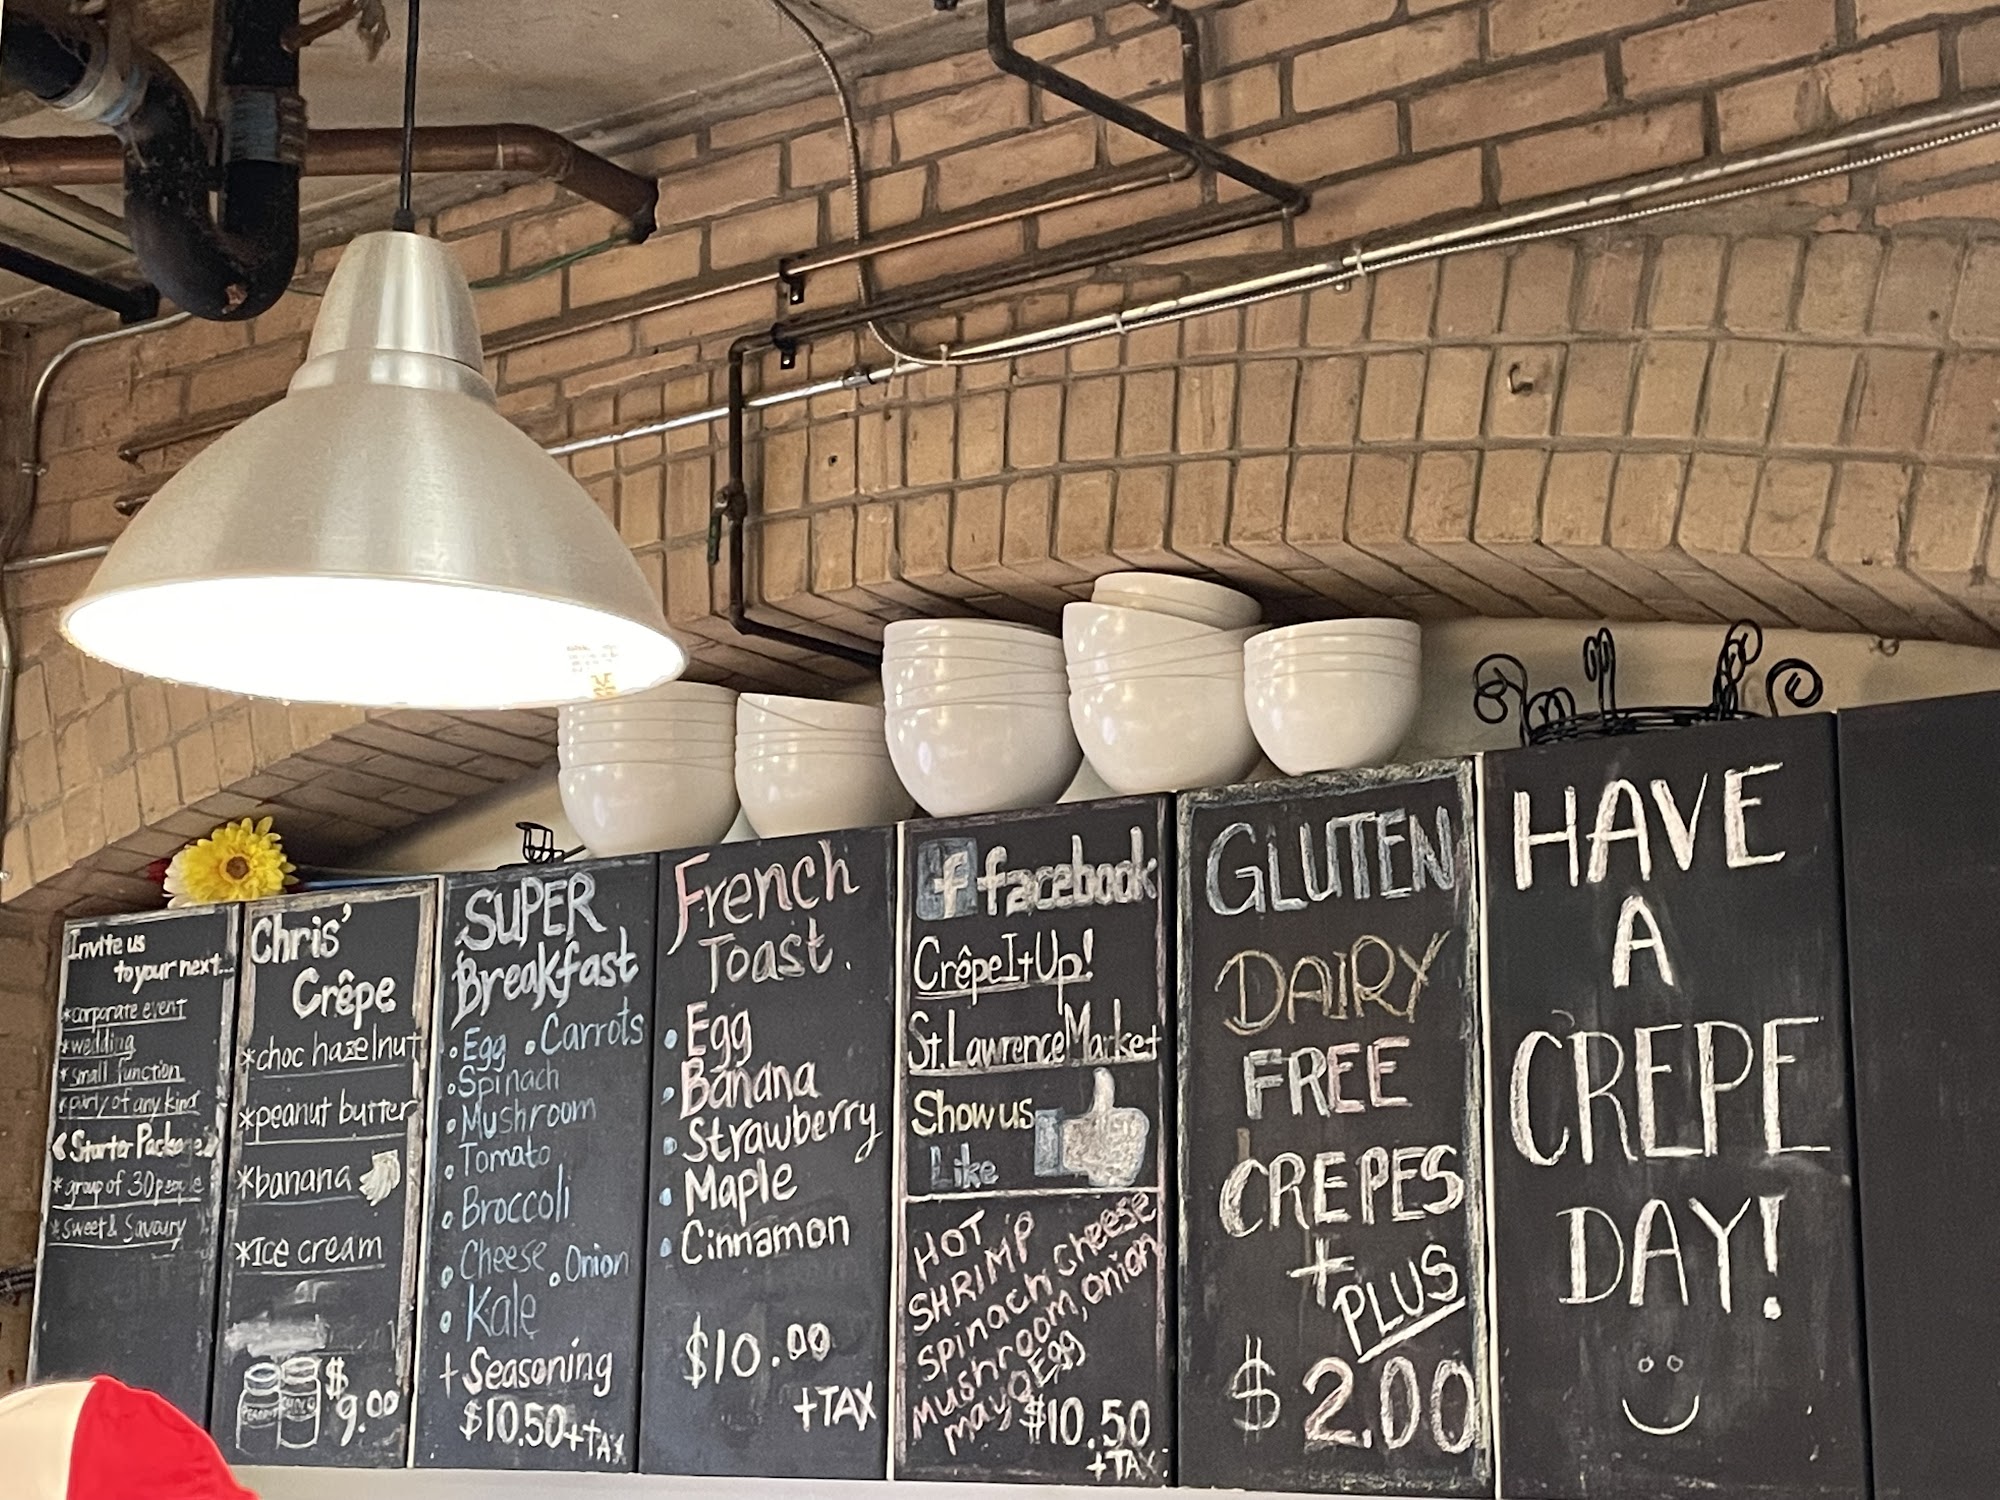 Invite us
to your next...
*corporate event
*wedding
*small function
*party of any kind
Starter Package
*group of 30 people
*sweet & savoury
Chris'
Crêpe
*choc hazelnut
*peanut butter
*banana
*Ice cream
PEANUT CHOCO
$
9.00
SUPER
Breakfast
• Egg • Carrots
• Spinach
• Mushroom
• Tomato
• Broccoli
• Cheese • Onion
• Kale
+ Seasoning
$10.50+TAX
French
Toast.
• Egg
• Banana
• Strawberry
• Maple
• Cinnamon
$10.00
+TAX
f facebook
CrêpeItUp!
St.Lawrence Market
Show us
Like
HOT
SHRIMP
spinach, cheese
mushroom, onion
mayo Egg
$10.50
+TAX
GLUTEN
DAIRY
FREE
CREPES
+
PLUS
$2.00
HAVE
A
CREPE
DAY!